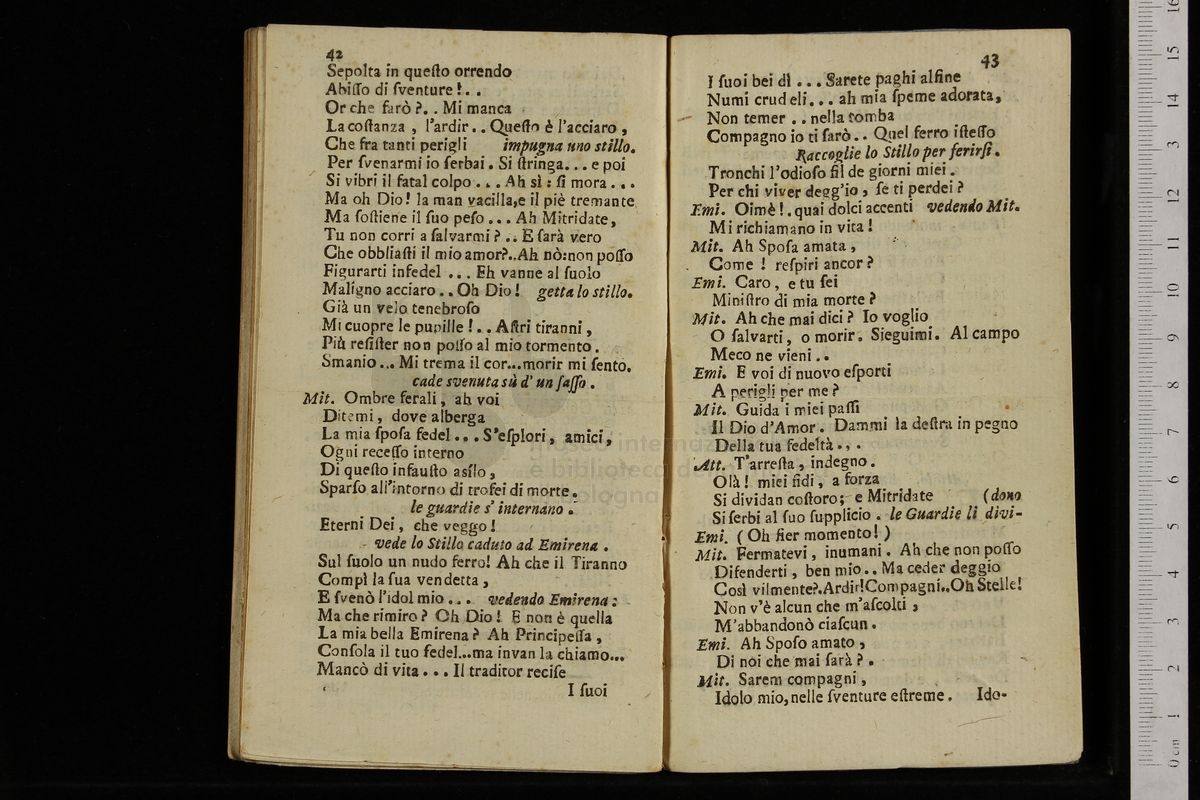 42
Sepolta in queſto orrendo
Abiſſo di ſventure!. .
Or che farò ?. . Mi manca
La coſtanza , l'ardir . . Queſto è l'acciaro ,
Che fra tanti perigli impugna uno stillo.
Per ſvenarmi io ſerbai. Si ſtringa. . . e poi
Si vibri il fatal colpo . . . Ah sì : ſi mora . . .
Ma oh Dio! la man vacilla,e il piè tremante
Ma ſoſtiene il ſuo peſo . . . Ah Mitridate,
Tu non corri a ſalvarmi ? . . E ſarà vero
Che obbliaſti il mio amor?..Ah nò:non poſſo
Figurarti infedel . . . Eh vanne al ſuolo
Maligno acciaro . . Oh Dio! getta lo stillo.
Già un velo tenebroſo
Mi cuopre le pupille !. . Aſtri tiranni ,
Più reſiſter non poſſo al mio tormento .
Smanio . . . Mi trema il cor...morir mi ſento.
cade svenuta sù d' un ſaſſo .
Mit. Ombre ferali, ah voi
Ditemi, dove alberga
La mia ſpoſa fedel . . . S'eſplori, amici,
Ogni receſſo interno
Di queſto infauſto aſilo ,
Sparſo all'intorno di trofei di morte.
le guardie s' internano .
Eterni Dei, che veggo !
vede lo Stillo caduto ad Emirena .
Sul ſuolo un nudo ferro! Ah che il Tiranno
Compì la ſua vendetta ,
E ſvenò l'idol mio . . . vedendo Emirena :
Ma che rimiro ? Oh Dio! E non è quella
La mia bella Emirena ? Ah Principeſſa ,
Conſola il tuo fedel...ma invan la chiamo...
Mancò di vita . . . Il traditor reciſe
I ſuoi
43
I ſuoi bei dì . . . Sarete paghi alfine
Numi crudeli. . . ah mia ſpeme adorata,
Non temer . . nella tomba
Compagno io ti ſarò . . Quel ferro iſteſſo
Raccoglie lo Stillo per ferirſi .
Tronchi l'odioſo fil de giorni miei .
Per chi viver degg'io , ſe ti perdei ?
Emi. Oimè !. quai dolci accenti vedendo Mit.
Mi richiamano in vita !
Mit. Ah Spoſa amata ,
Come ! reſpiri ancor ?
Emi. Caro, e tu ſei
Miniſtro di mia morte ?
Mit. Ah che mai dici ? Io voglio
O ſalvarti, o morir. Sieguimi. Al campo
Meco ne vieni . .
Emi. E voi di nuovo eſporti
A perigli per me ?
Mit. Guida i miei paſſi
Il Dio d'Amor . Dammi la deſtra in pegno
Della tua fedeltà . . .
Att. T'arreſta , indegno .
Olà ! miei fidi, a forza
Si dividan coſtoro; e Mitridate (dono
Si ſerbi al ſuo ſupplicio . le Guardie li divi-
Emi. ( Oh fier momento! )
Mit. Fermatevi, inumani. Ah che non poſſo
Difenderti, ben mio . . Ma ceder deggio
Così vilmente?.Ardir!Compagni..Oh Stelle!
Non v'è alcun che m'aſcolti ,
M'abbandonò ciaſcun .
Emi. Ah Spoſo amato ,
Di noi che mai ſarà ? .
Mit. Sarem compagni ,
Idolo mio,nelle ſventure eſtreme . Ido-